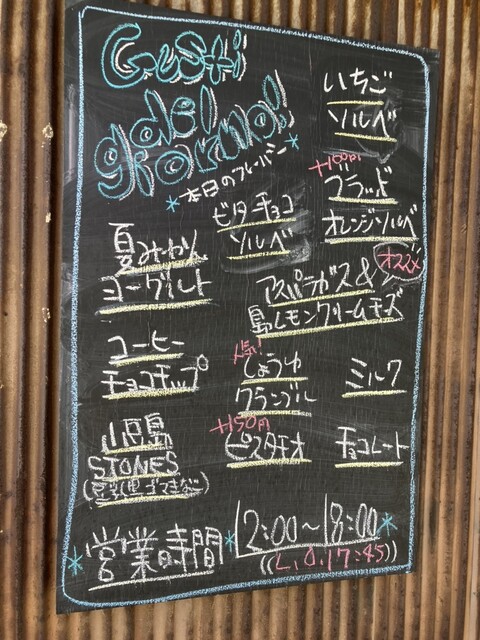 Gusti
del
giorno!
*本日のフレーバー*
いちご
ソルベ
ビターチョコ
ソルベ
+100円
ブラッド
オレンジソルベ
夏みかん
ヨーグルト
オススメ
アスパラガス&
島レモンクリームチーズ
コーヒー
チョコチップ
人気!
しょうゆ
クランブル
ミルク
STONES
+150円
ピスタチオ
チョコレート
*営業時間*
12:00~18:00*
((L.O.17:45))